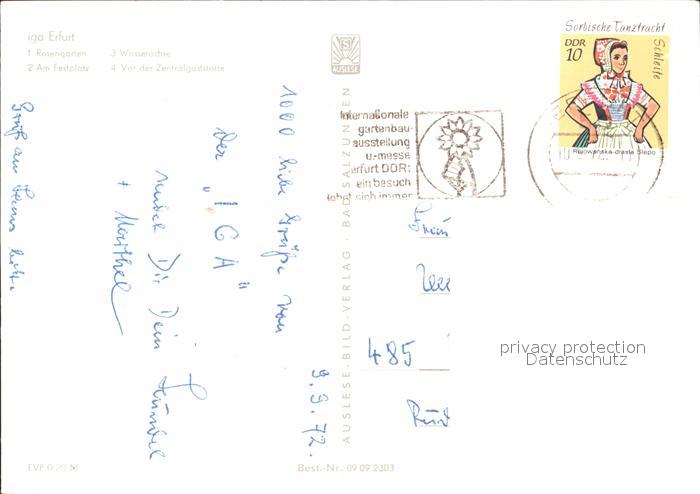 iga Erfurt
1 Rosengarten 3 Wasserachse
2 Am Festplatz 4 Vor der Zentralgaststätte
AUSLESE
Sorbische Tanztracht
Schleife
DDR
10
Rejowańska drasta Slepo
Internationale
gartenbau-
ausstellung
u-messe
erfurt DDR:
ein besuch
lohnt sich immer
AUSLESE-BILD-VERLAG · BAD SALZUNGEN
9.9.72.
1000 liebe Grüße von
Der "IGA"
sendet Dir Dein
+
Gruß an
485
privacy protection
Datenschutz
EVP 0,20 M
Best.-Nr. 09 09 2303